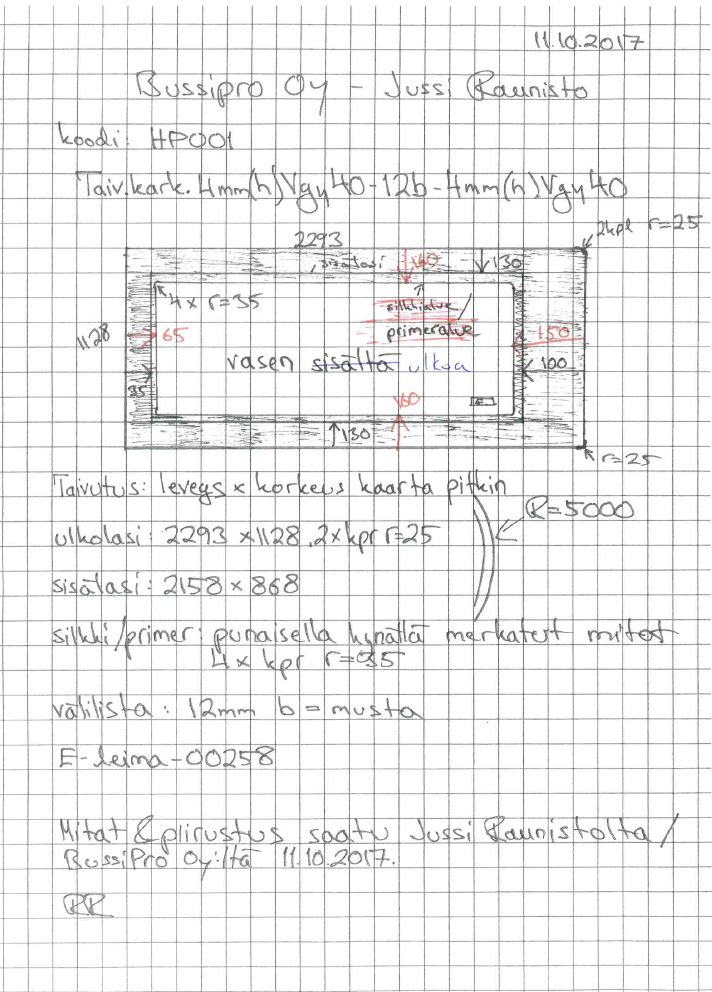 11.10.2017
Bussipro Oy - Jussi Raunisto
koodi: HP001
Taiv.kark. 4mm(h)Vgy40-12b-4mm(h)Vgy40
2kpl r=25
2293
sisälasi
160
130
4x r=35
silkkialue/
primeralue
1128
65
150
vasen sisältä ulkoa
100
35
160
E
130
r=25
Taivutus: leveys x korkeus kaarta pitkin
R=5000
ulkolasi: 2293 x1128 .2xkpr r=25
sisälasi: 2158 x 868
silkki/primer: punaisella kynällä merkatut mitat
4x kpr r=35
välilista: 12mm b = musta
E-leima-00258
Mitat & piirustus saatu Jussi Raunistolta/
BussiPro Oy:ltä 11.10.2017.
RR